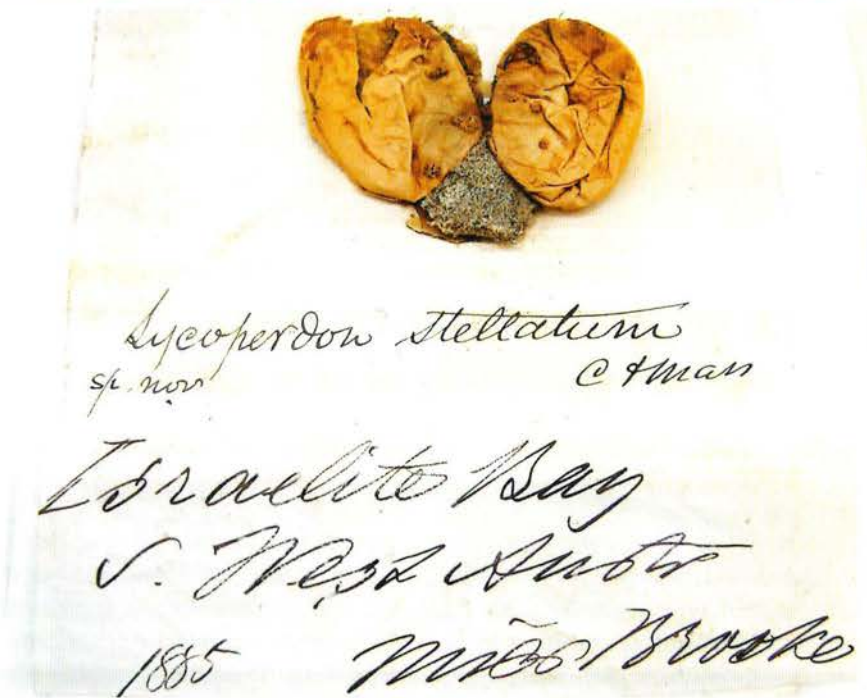 Lycoperdon stellatum
sp. nov C & Mass
Israelite Bay
S. West Austr
1885 Miss Brooke